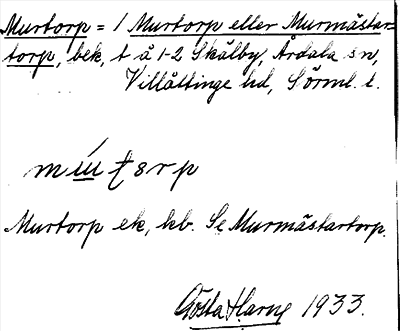 Murtorp = 1 Murtorp eller Murmästar-
torp, bek, t å 1-2 Skälby, Årdala sn,
Villåttinge hd, Sörml. l.
Murtorp ek, kb. Se Murmästartorp.
Gösta Harne 1933.